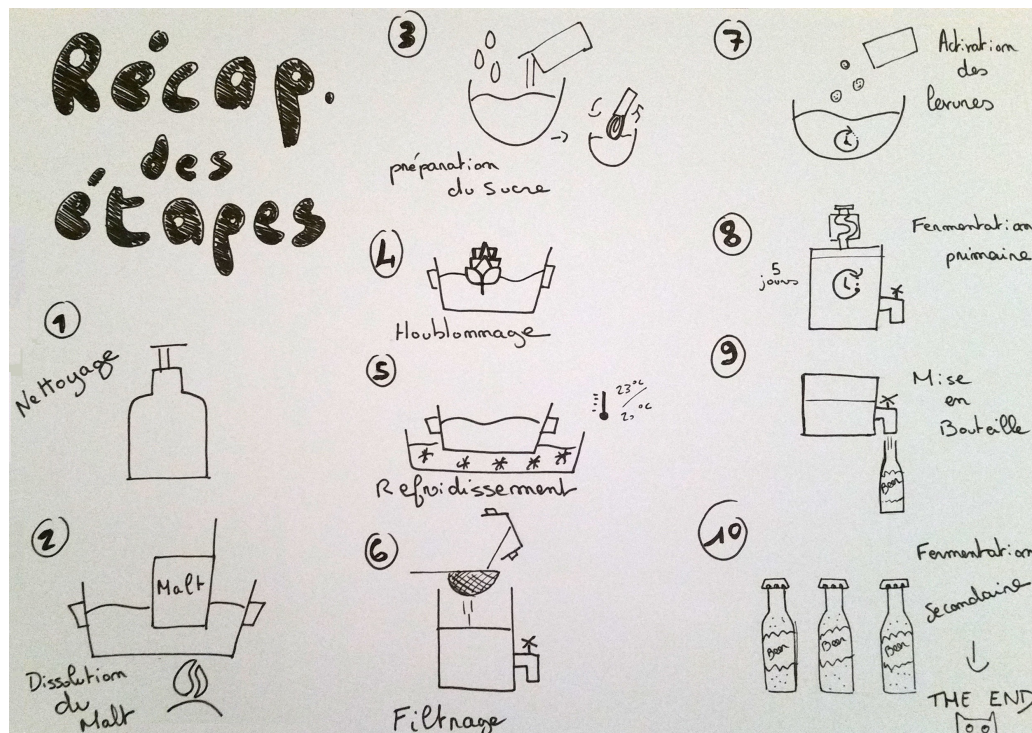 Récap.
des
étapes
1
Nettoyage
2
Malt
Dissolution
du
Malt
3
préparation
du sucre
4
Houblommage
5
23°C
Refroidissement
6
Filtrage
7
Activation
des
levures
8
5
jours
Fermentation
primaire
9
Mise
en
Bouteille
Beer
10
Fermentation
Secondaire
Beer
Beer
Beer
THE END